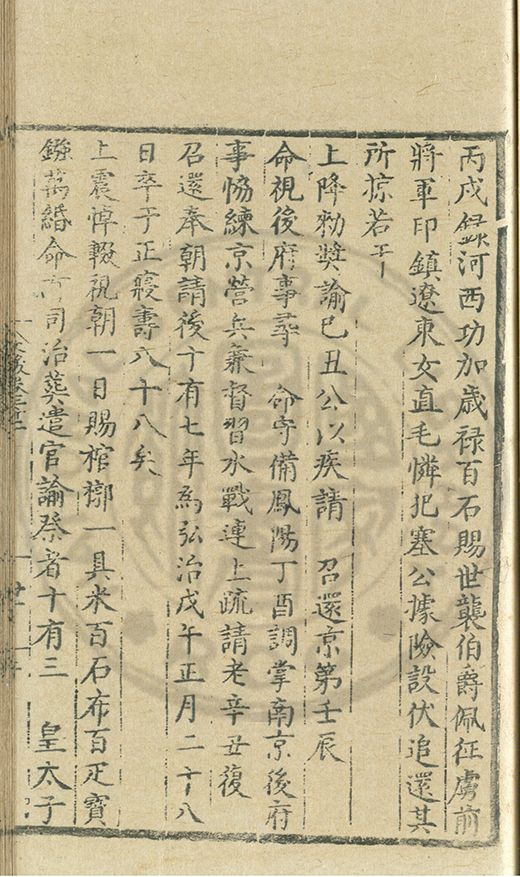 丙戌録河西功加歲禄百石賜世襲伯爵佩征虜前
將軍印鎮遼東女直毛憐犯塞公據險設伏追還其
所掠若干
上降勑奬諭己丑公以疾請　召還京第壬辰
命視後府事尋　命守備鳳陽丁酉調掌南京後府
事恊練京營兵兼督習水戰連上疏請老辛丑復
召還奉朝請後十有七年為弘治戊午正月二十八
日卒于正寢壽八十八矣
上震悼輟視朝一日賜棺槨一具米百石布百疋寶
鏹萬緡命有司治葬遣官諭祭者十有三　皇太子